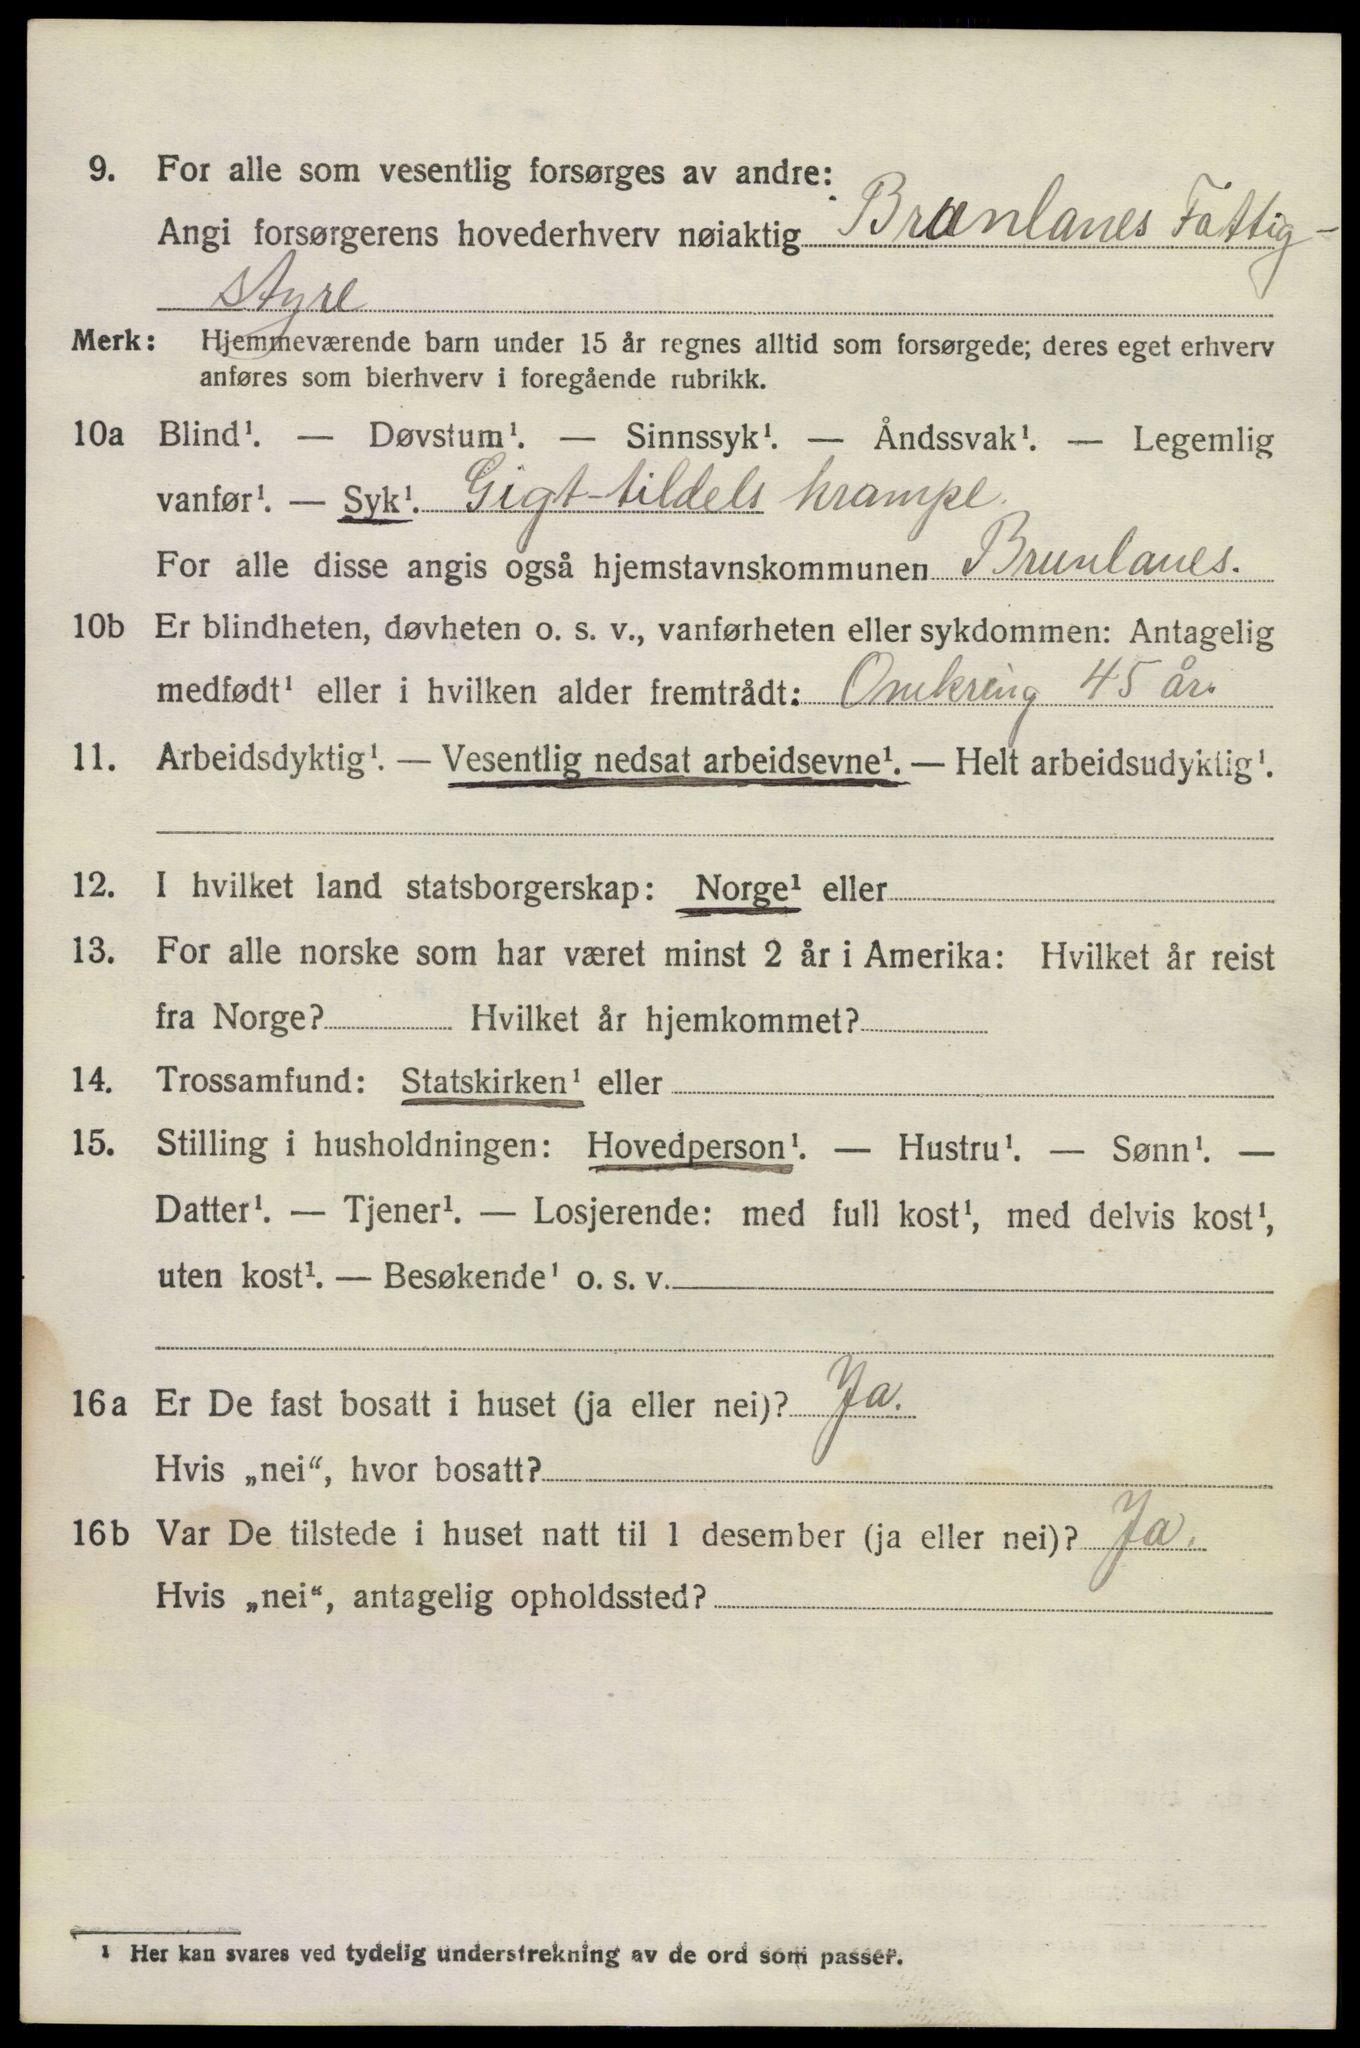 9. For alle som vesentlig forsørges av andre:
Angi forsørgerens hovederhverv nøiaktig Brunlanes Fattig-
styre
Merk: Hjemmeværende barn under 15 år regnes alltid som forsørgede; deres eget erhverv
anføres som bierhverv i foregående rubrikk.
10a Blind¹. — Døvstum¹. — Sinnssyk¹. — Åndssvak¹. — Legemlig
vanfør¹. — Syk¹. Gigt-tildels krampe.
For alle disse angis også hjemstavnskommunen Brunlanes.
10b Er blindheten, døvheten o. s. v., vanførheten eller sykdommen: Antagelig
medfødt¹ eller i hvilken alder fremtrådt: Omkring 45 år.
11. Arbeidsdyktig¹. — Vesentlig nedsat arbeidsevne¹. — Helt arbeidsudyktig¹.
12. I hvilket land statsborgerskap: Norge¹ eller
13. For alle norske som har været minst 2 år i Amerika: Hvilket år reist
fra Norge? Hvilket år hjemkommet?
14. Trossamfund: Statskirken¹ eller
15. Stilling i husholdningen: Hovedperson¹. — Hustru¹. — Sønn¹. —
Datter¹. — Tjener¹. — Losjerende: med full kost¹, med delvis kost¹,
uten kost¹. — Besøkende¹ o. s. v.
16a Er De fast bosatt i huset (ja eller nei)? Ja.
Hvis „nei“, hvor bosatt?
16b Var De tilstede i huset natt til 1 desember (ja eller nei)? Ja.
Hvis „nei“, antagelig opholdssted?
¹ Her kan svares ved tydelig understrekning av de ord som passer.